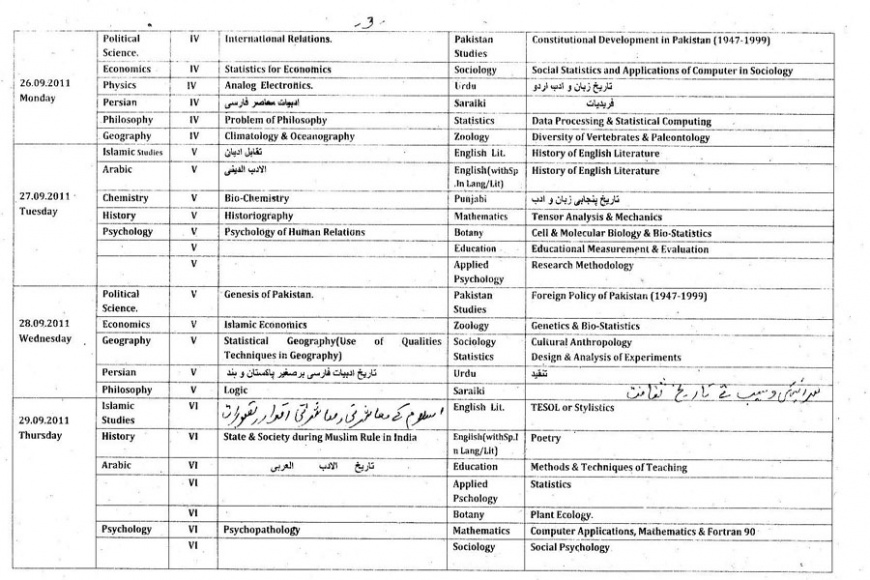 -3-
Political Science. IV International Relations. Pakistan Studies Constitutional Development in Pakistan (1947-1999)
26.09.2011 Monday
Economics IV Statistics for Economics Sociology Social Statistics and Applications of Computer in Sociology
Physics IV Analog Electronics. Urdu تاریخ زبان و ادب اردو
Persian IV ادبیات معاصر فارسی Saraiki فریدیات
Philosophy IV Problem of Philosophy Statistics Data Processing & Statistical Computing
Geography IV Climatology & Oceanography Zoology Diversity of Vertebrates & Paleontology
27.09.2011 Tuesday
Islamic Studies V تقابل ادیان English Lit. History of English Literature
Arabic V الادب الدینی English(withSp.In Lang/Lit) History of English Literature
Chemistry V Bio-Chemistry Punjabi تاریخ پنجابی زبان و ادب
History V Historiography Mathematics Tensor Analysis & Mechanics
Psychology V Psychology of Human Relations Botany Cell & Molecular Biology & Bio-Statistics
V Education Educational Measurement & Evaluation
V Applied Psychology Research Methodology
28.09.2011 Wednesday
Political Science. V Genesis of Pakistan. Pakistan Studies Foreign Policy of Pakistan (1947-1999)
Economics V Islamic Economics Zoology Genetics & Bio-Statistics
Geography V Statistical Geography(Use of Qualities Techniques in Geography) Sociology Cultural Anthropology
Statistics Design & Analysis of Experiments
Persian V تاریخ ادبیات فارسی برصغیر پاکستان و ہند Urdu تنقید
Philosophy V Logic Saraiki سرائیکی وسیب تے تاریخ ثقافت
29.09.2011 Thursday
Islamic Studies VI اسلام کے معاشرتی English Lit. TESOL or Stylistics
History VI State & Society during Muslim Rule in India English(withSp.In Lang/Lit) Poetry
Arabic VI تاریخ الادب العربی Education Methods & Techniques of Teaching
VI Applied Pschology Statistics
VI Botany Plant Ecology.
Psychology VI Psychopathology Mathematics Computer Applications, Mathematics & Fortran 90
VI Sociology Social Psychology